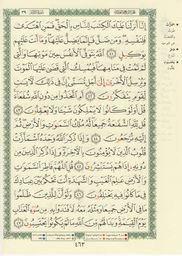 إِنَّا أَنزَلْنَا عَلَيْكَ الْكِتَابَ لِلنَّاسِ بِالْحَقِّ فَمَنِ اهْتَدَىٰ
فَلِنَفْسِهِ وَمَن ضَلَّ فَإِنَّمَا يَضِلُّ عَلَيْهَا وَمَا أَنتَ عَلَيْهِم
بِوَكِيلٍ ٤١ اللَّهُ يَتَوَفَّى الْأَنفُسَ حِينَ مَوْتِهَا وَالَّتِي
لَمْ تَمُتْ فِي مَنَامِهَا فَيُمْسِكُ الَّتِي قَضَىٰ عَلَيْهَا الْمَوْتَ
وَيُرْسِلُ الْأُخْرَىٰ إِلَىٰ أَجَلٍ مُّسَمًّى إِنَّ فِي ذَٰلِكَ لَآيَاتٍ
لِّقَوْمٍ يَتَفَكَّرُونَ ٤٢ أَمِ اتَّخَذُوا مِن دُونِ اللَّهِ شُفَعَاءَ
قُلْ أَوَلَوْ كَانُوا لَا يَمْلِكُونَ شَيْئًا وَلَا يَعْقِلُونَ ٤٣
قُل لِّلَّهِ الشَّفَاعَةُ جَمِيعًا لَّهُ مُلْكُ السَّمَاوَاتِ وَالْأَرْضِ
ثُمَّ إِلَيْهِ تُرْجَعُونَ ٤٤ وَإِذَا ذُكِرَ اللَّهُ وَحْدَهُ اشْمَأَزَّتْ
قُلُوبُ الَّذِينَ لَا يُؤْمِنُونَ بِالْآخِرَةِ وَإِذَا ذُكِرَ الَّذِينَ
مِن دُونِهِ إِذَا هُمْ يَسْتَبْشِرُونَ ٤٥ قُلِ اللَّهُمَّ فَاطِرَ السَّمَاوَاتِ
وَالْأَرْضِ عَالِمَ الْغَيْبِ وَالشَّهَادَةِ أَنتَ تَحْكُمُ بَيْنَ عِبَادِكَ
فِي مَا كَانُوا فِيهِ يَخْتَلِفُونَ ٤٦ وَلَوْ أَنَّ لِلَّذِينَ ظَلَمُوا
مَا فِي الْأَرْضِ جَمِيعًا وَمِثْلَهُ مَعَهُ لَافْتَدَوْا بِهِ مِن سُوءِ الْعَذَابِ
يَوْمَ الْقِيَامَةِ وَبَدَا لَهُم مِّنَ اللَّهِ مَا لَمْ يَكُونُوا يَحْتَسِبُونَ ٤٧
٤٦٣